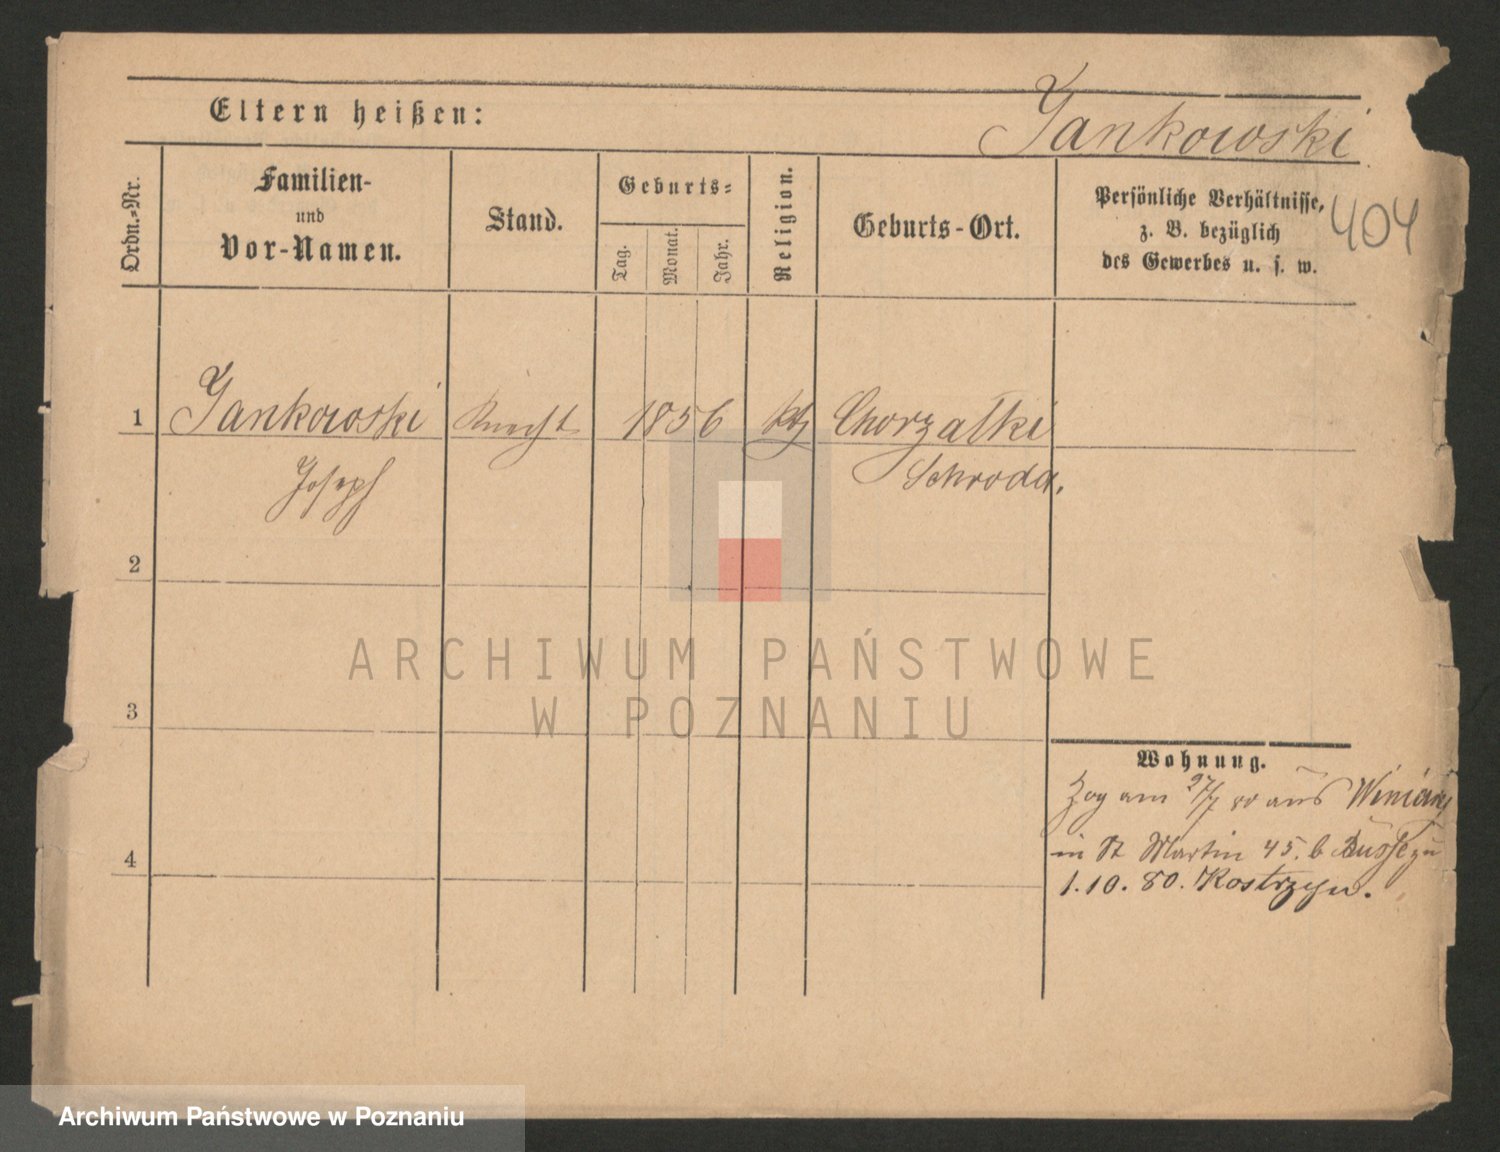 Eltern heißen:
Jankowski
Ordn.=Nr.
Familien-
und
Vor-Namen.
Stand.
Geburts=
Tag.
Monat.
Jahr.
Religion.
Geburts-Ort.
Persönliche Verhältnisse,
z. B. bezüglich
des Gewerbes u. s. w.
404
1 Jankowski Knecht 1856 kth Chorzałki
Joseph Schroda.
2
3
4
Wohnung.
Zog am 27/7 80 aus Winiary
in St Martin 45. b
1.10.80. Kostrzyn.
ARCHIWUM PAŃSTWOWE
W POZNANIU
Archiwum Państwowe w Poznaniu